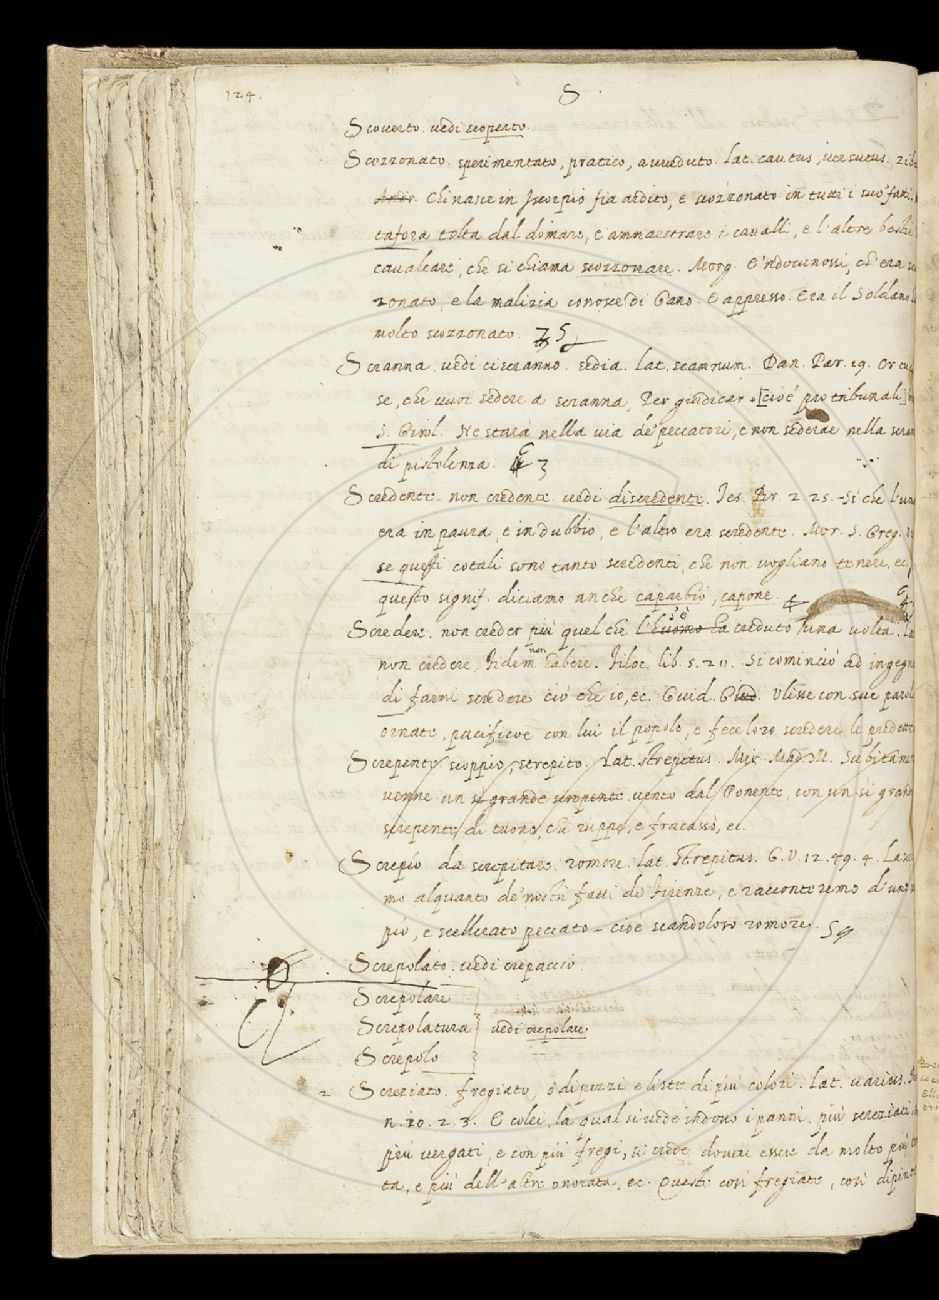 124.
S
Scoverto. vedi scoperto.
Scozzonato. sperimentato, pratico, avveduto. lat. cautus, versutus. Zib
Andr. Chi nasce in Iscorpio fia ardito, e scozzonato in tutti i suo' fatti.
tafora tolta dal domare, e ammaestrare i cavalli, e l'altre bestie
cavalcare, che si chiama scozzonare. Morg. E 'ndovinossi, ch'era
zonato, e la malizia conosce di Gano. E appresso. Era il Soldano
molto scozzonato. 5
Scranna. vedi ciscranno. sedia. lat. scamnum. Dan. Par. 19. Or tu
se, che vuoi sedere a scranna, Per giudicar [cioè pro tribunali]
S. Girol. Ne starà nella via de' peccatori, e non sederae nella scran
di pistolenza. 3
Scredente. non credente. vedi discredente. Tes. Br. 2. 25. Sì che l'uno
era in paura, e in dubbio, e l'altro era scredente. Mor. S. Greg.
se questi cotali sono tanto scredenti, che non vogliano tenere, ec.
questo signif. diciamo anche caparbio, capone.
Scredere. non creder più quel che l'huomo ha s'è creduto una volta.
non credere, fidem non habere. Filoc. lib. 5. 211. Si cominciò ad ingegn
di farmi scredere ciò che io, ec. Guid. Giud. Ulisse con sue parole
ornate, pacificoe con lui il popolo, e fece loro scredere le predette
Screpente, scoppio, strepito. Lat. strepitus. Mir. Mad. M. Subitamen
venne un sì grande screpente vento dal Ponente, con un sì gran
screpente di tuono, che ruppe, e fracassò, ec.
Screpio. da screpitare. romore. lat. strepitus. G. V. 12. 79. 4. Lasce
mo alquanto de' nostri fatti di Firenze, e racconteremo d'uno
pio, e scellerato peccato - cioè scandoloso romore. 59
Screpolato. vedi crepaccio.
Screpolare
Screpolatura vedi crepolare
Screpolo
2 Screziato. fregiato, o di pezzi e liste di più colori. Lat. varius.
n. 20. 2. 3. E colei, la qual si vede indosso i panni più screziati
più vergati, e con più fregi, si crede dovere essere da molto più
ta, e più dell'altre onorata, ec. Questi così fregiate, così dipin